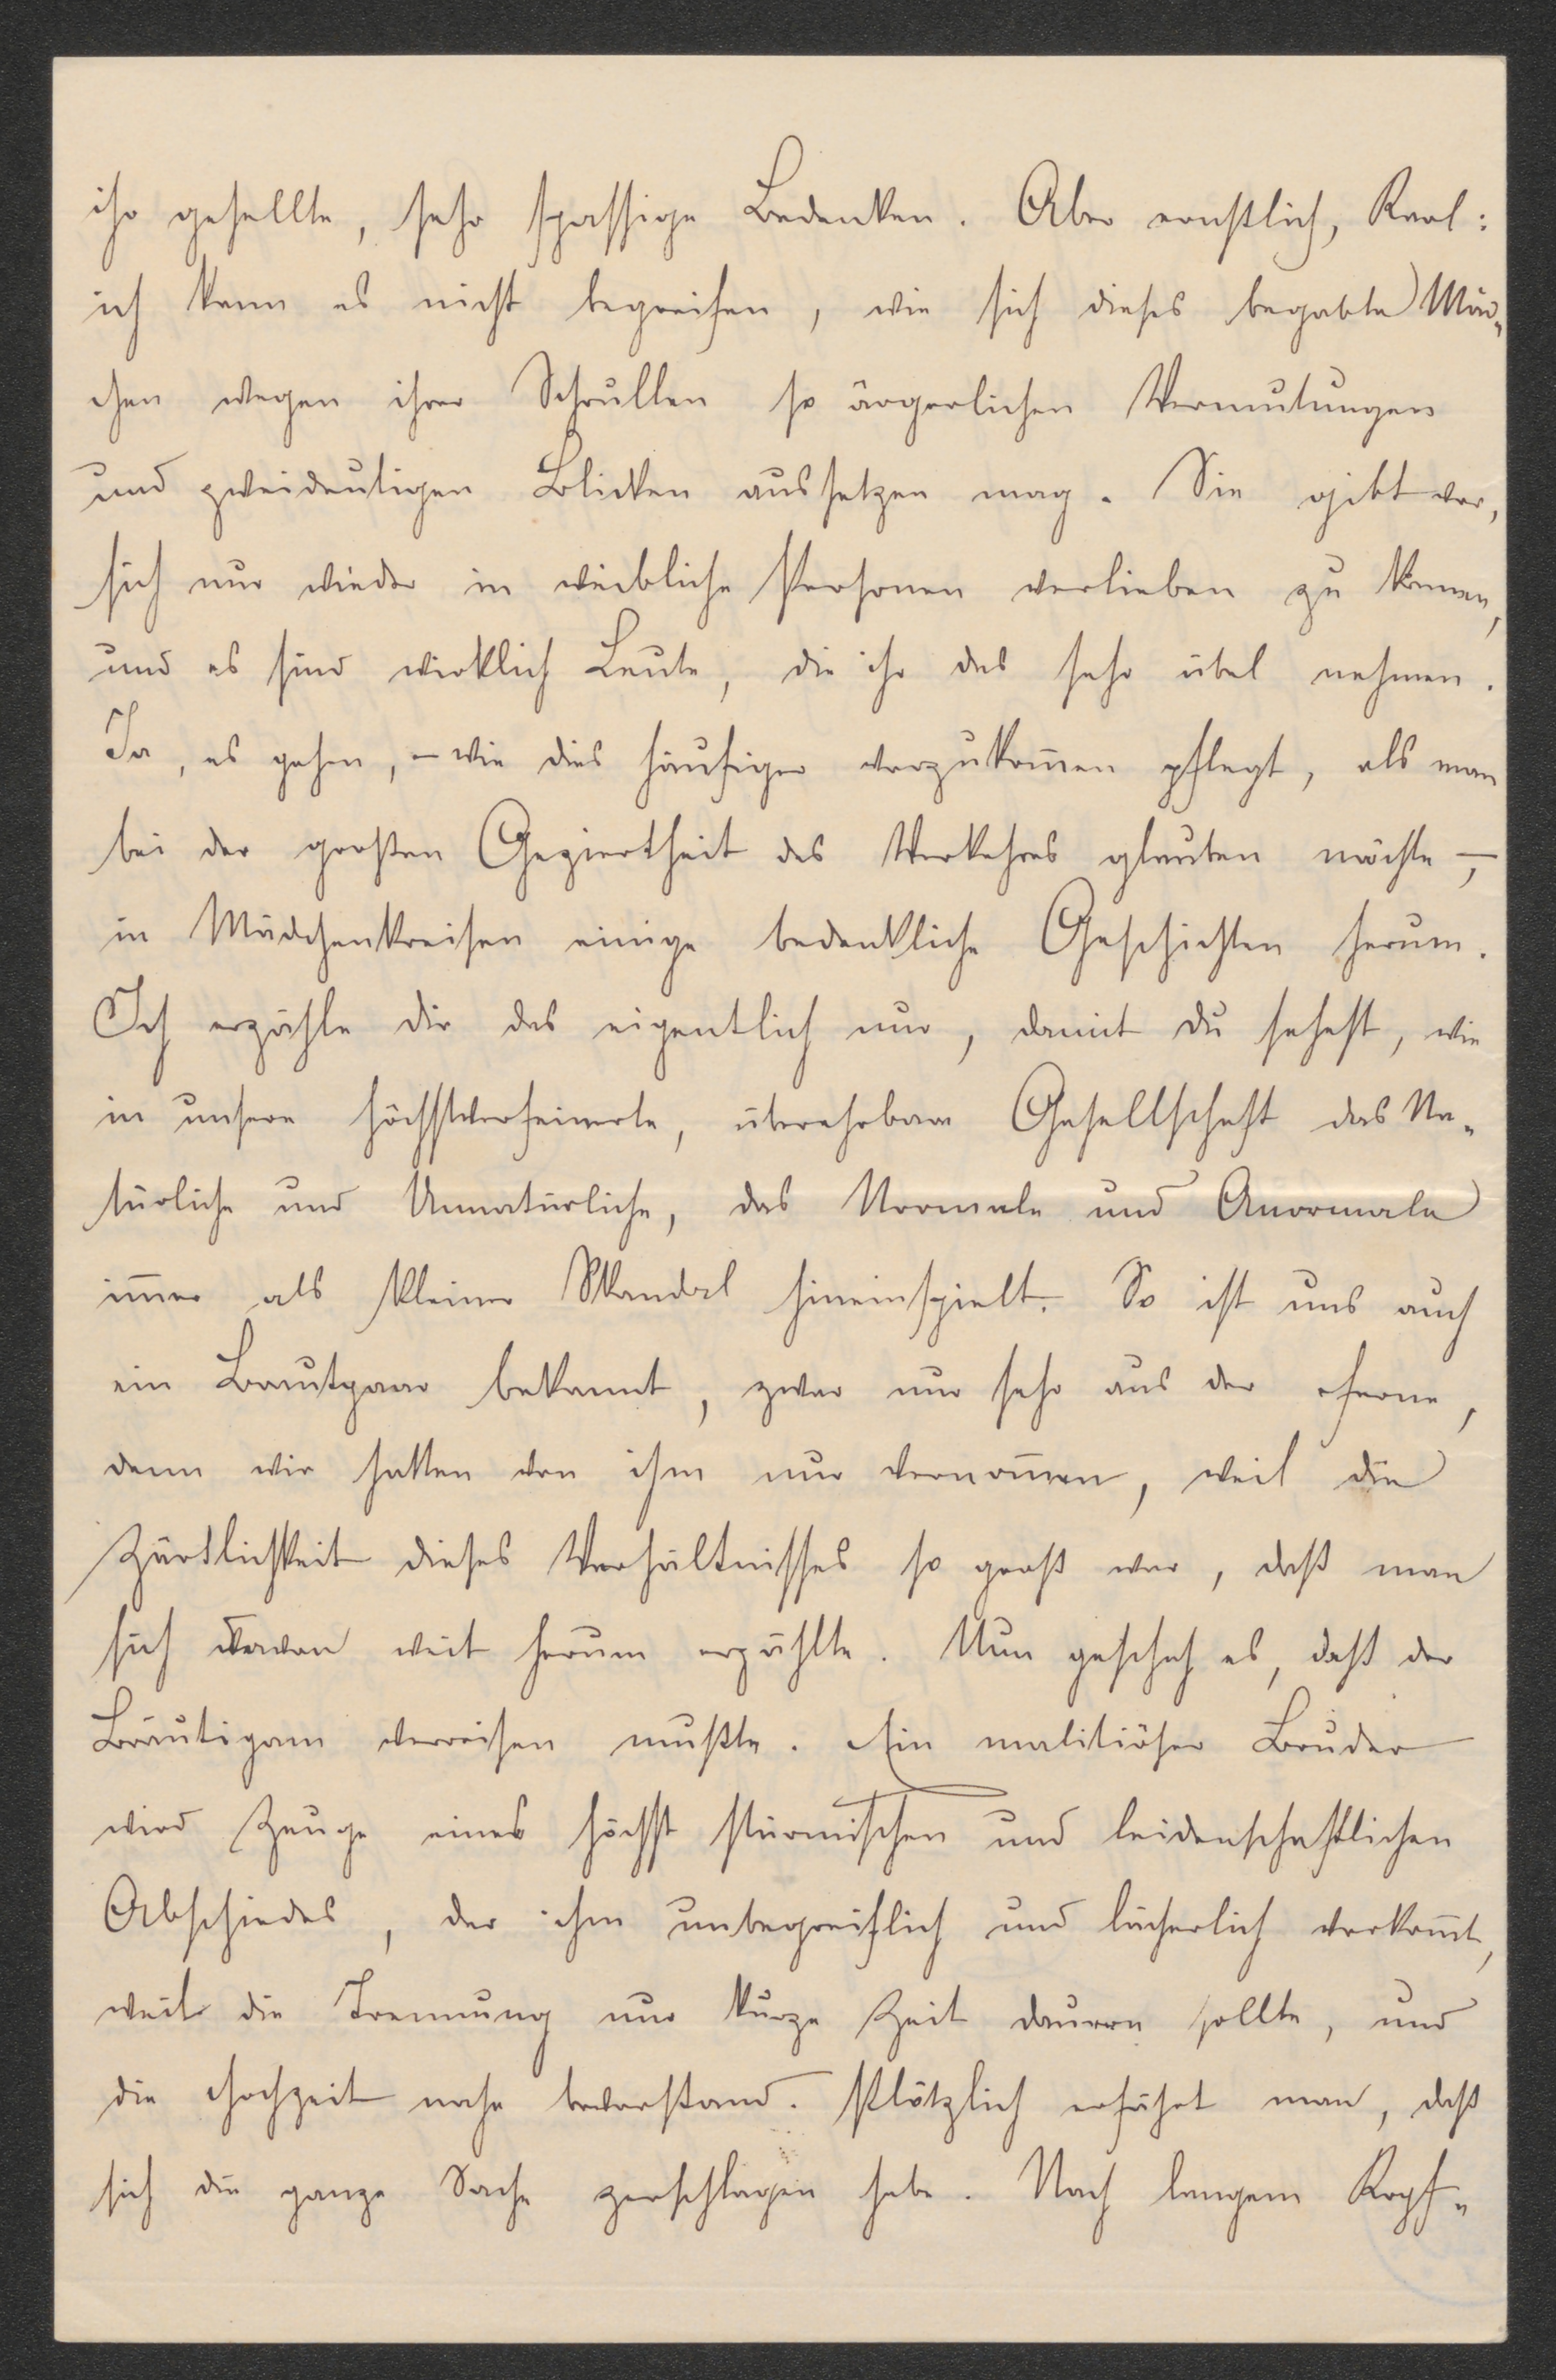 ihr gesellte, sehr spassige Bedenken. Aber ernstlich, Karl:
ich kann es nicht begreifen, wie sich dieses begabte Mäd-
chen wegen ihrer Schrullen so ärgerlichen Vermutungen
und zweideutigen Blicken aussetzen mag. Sie gibt vor,
sich nur wieder in weibliche Personen verlieben zu können,
und es sind wirklich Leute, die ihr das sehr übel nehmen.
Ja, es gehen, – wie dies häufiger vorzukom̄en pflegt, als man
bei der großen Geziertheit des Verkehres glauben möchte –,
in Mädchenkreisen einige bedenkliche Geschichten herum.
Ich erzähle dir das eigentlich nur, damit du sehest, wie
in unsere höchstverfeinerte, überehrbare Gesellschaft das Na-
türliche und Unnatürliche, das Normale und Anormale
im̄er als kleiner Skandal hineinspielt. So ist uns auch
ein Brautpaar bekannt, zwar nur sehr aus der Ferne,
denn wir hatten von ihm nur vernom̄en, weil die
Zärtlichkeit dieses Verhältnisses so groß war, daß man
sich davon weit herum erzählte. Nun geschah es, daß der
Bräutigam verreisen mußte. Ein malitiöser Bruder
wird Zeuge eines höchst stürmischen und leidenschaftlichen
Abschiedes, der ihm unbegreiflich und lächerlich vorkom̄t,
weil die Trennung nur kurze Zeit dauern sollte, und
die Hochzeit nahe bevorstand. Plötzlich erfährt man, daß
sich die ganze Sache zerschlagen habe. Nach langem Kopf-